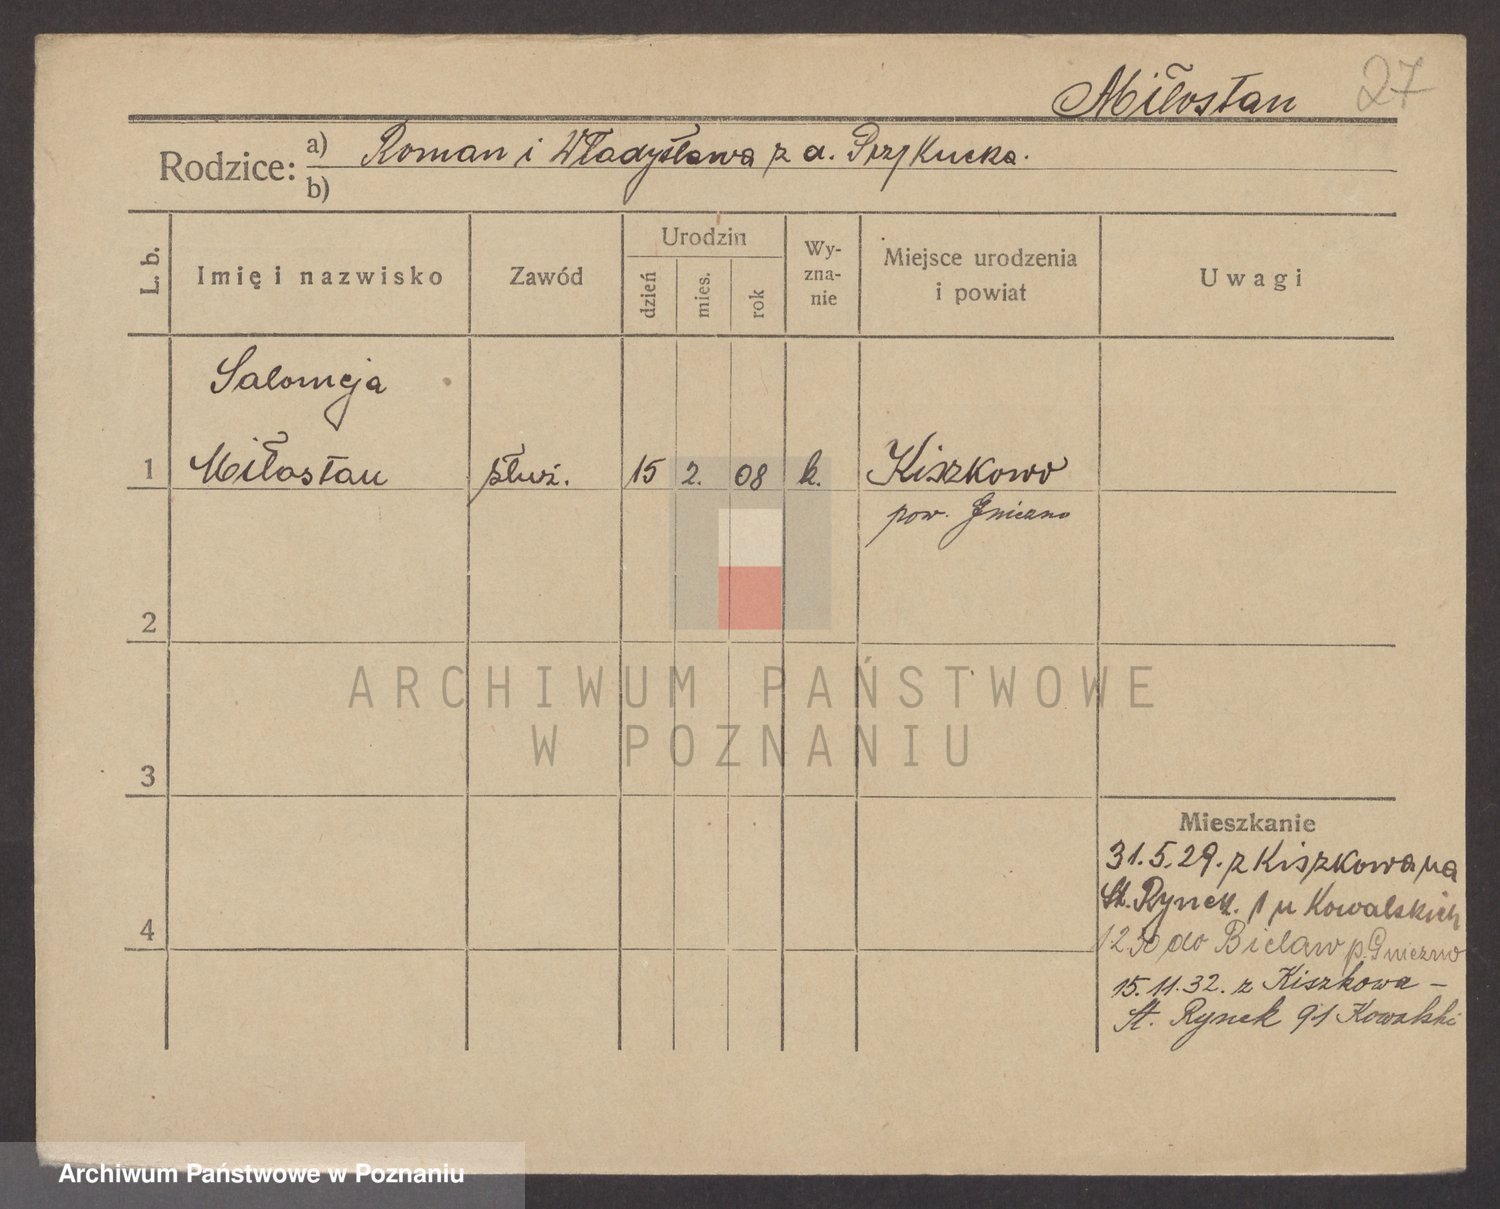 Miłostan 27
Rodzice: a) Roman i Władysława z d. Przykucka.
b)
L. b.
Imię i nazwisko
Zawód
Urodzin
dzień
mies.
rok
Wy-
zna-
nie
Miejsce urodzenia
i powiat
Uwagi
Salomeja
1 Miłostan służ. 15 2. 08 k. Kiszkowo
pow. Gniezno
2
3
4
Mieszkanie
31.5.29. z Kiszkowa na
St. Rynek. u Kowalskich
do Bielaw p. Gniezno
15.11.32. z Kiszkowa –
St. Rynek 91 Kowalski
ARCHIWUM PAŃSTWOWE
W POZNANIU
Archiwum Państwowe w Poznaniu